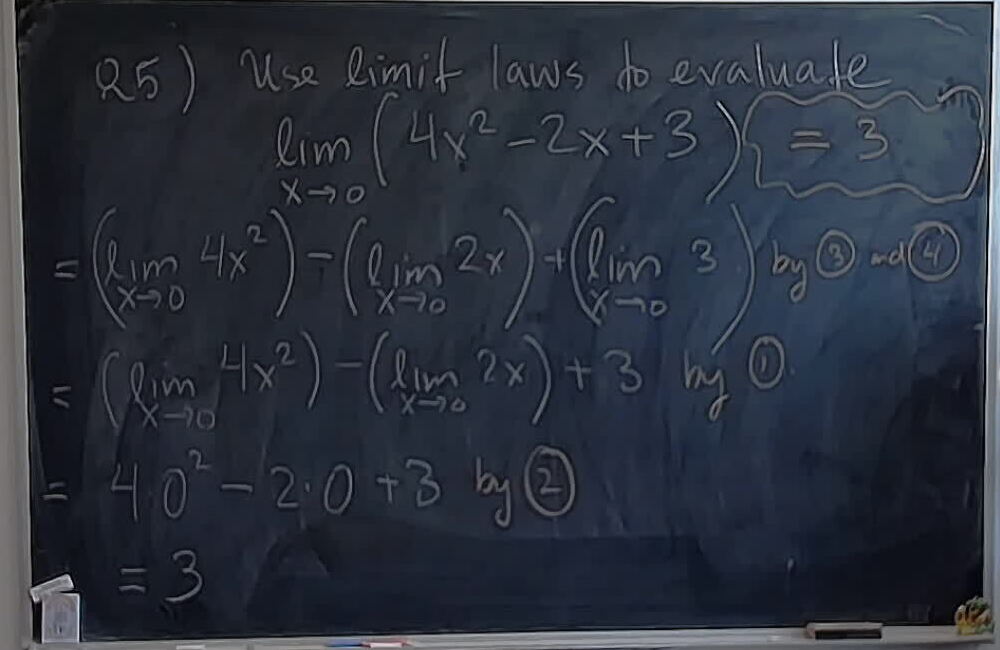 Q5) Use limit laws to evaluate
lim x→0 (4x² − 2x + 3) = 3
= (lim x→0 4x²) − (lim x→0 2x) + (lim x→0 3) by ③ and ④
= (lim x→0 4x²) − (lim x→0 2x) + 3 by ①.
= 4·0² − 2·0 + 3 by ②
= 3